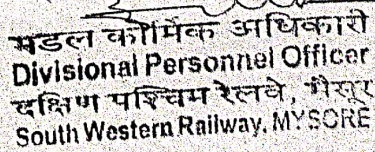 मंडल कार्मिक अधिकारी
Divisional Personnel Officer
दक्षिण पश्चिम रेलवे, मैसूर
South Western Railway, MYSORE